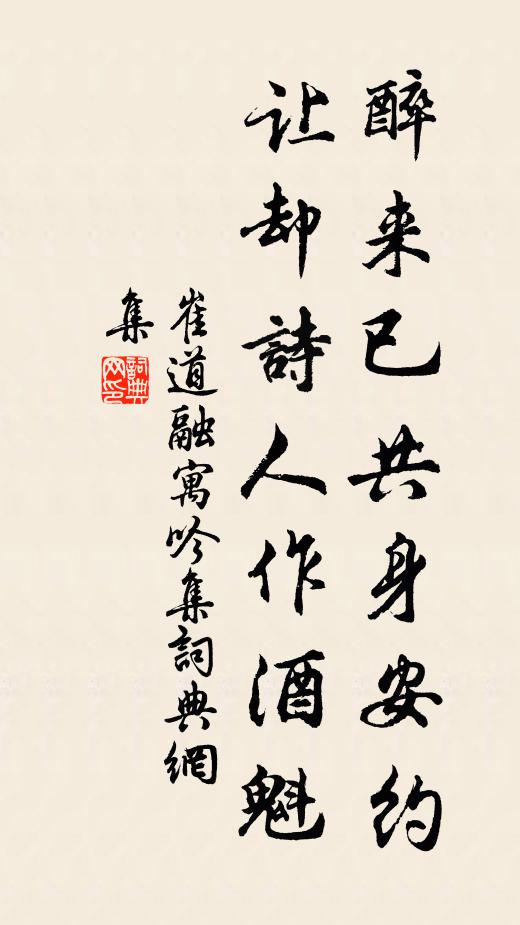 醉来已共身安约
让却詩人作酒魁
崔道融寓吟集詞典網
集
詞典网印